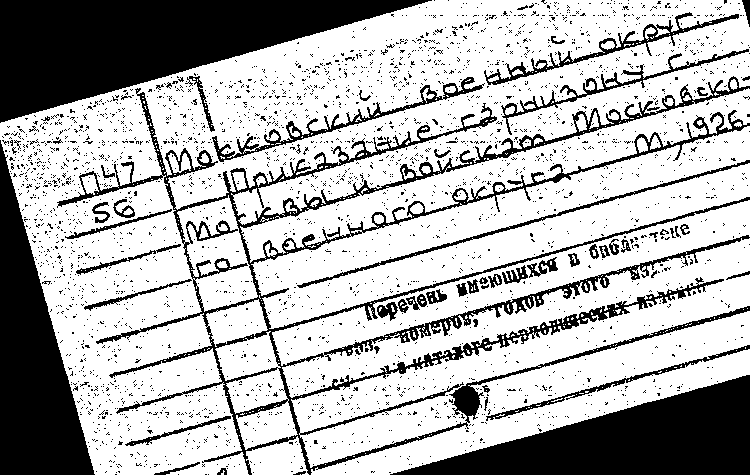 Московский военный округ.
П47 Приказание гарнизону г.
56 Москвы и войскам Московско-
го военного округа. М., 1926.
Перечень имеющихся в библиотеке
номеров, годов этого
в каталоге периодических изданий